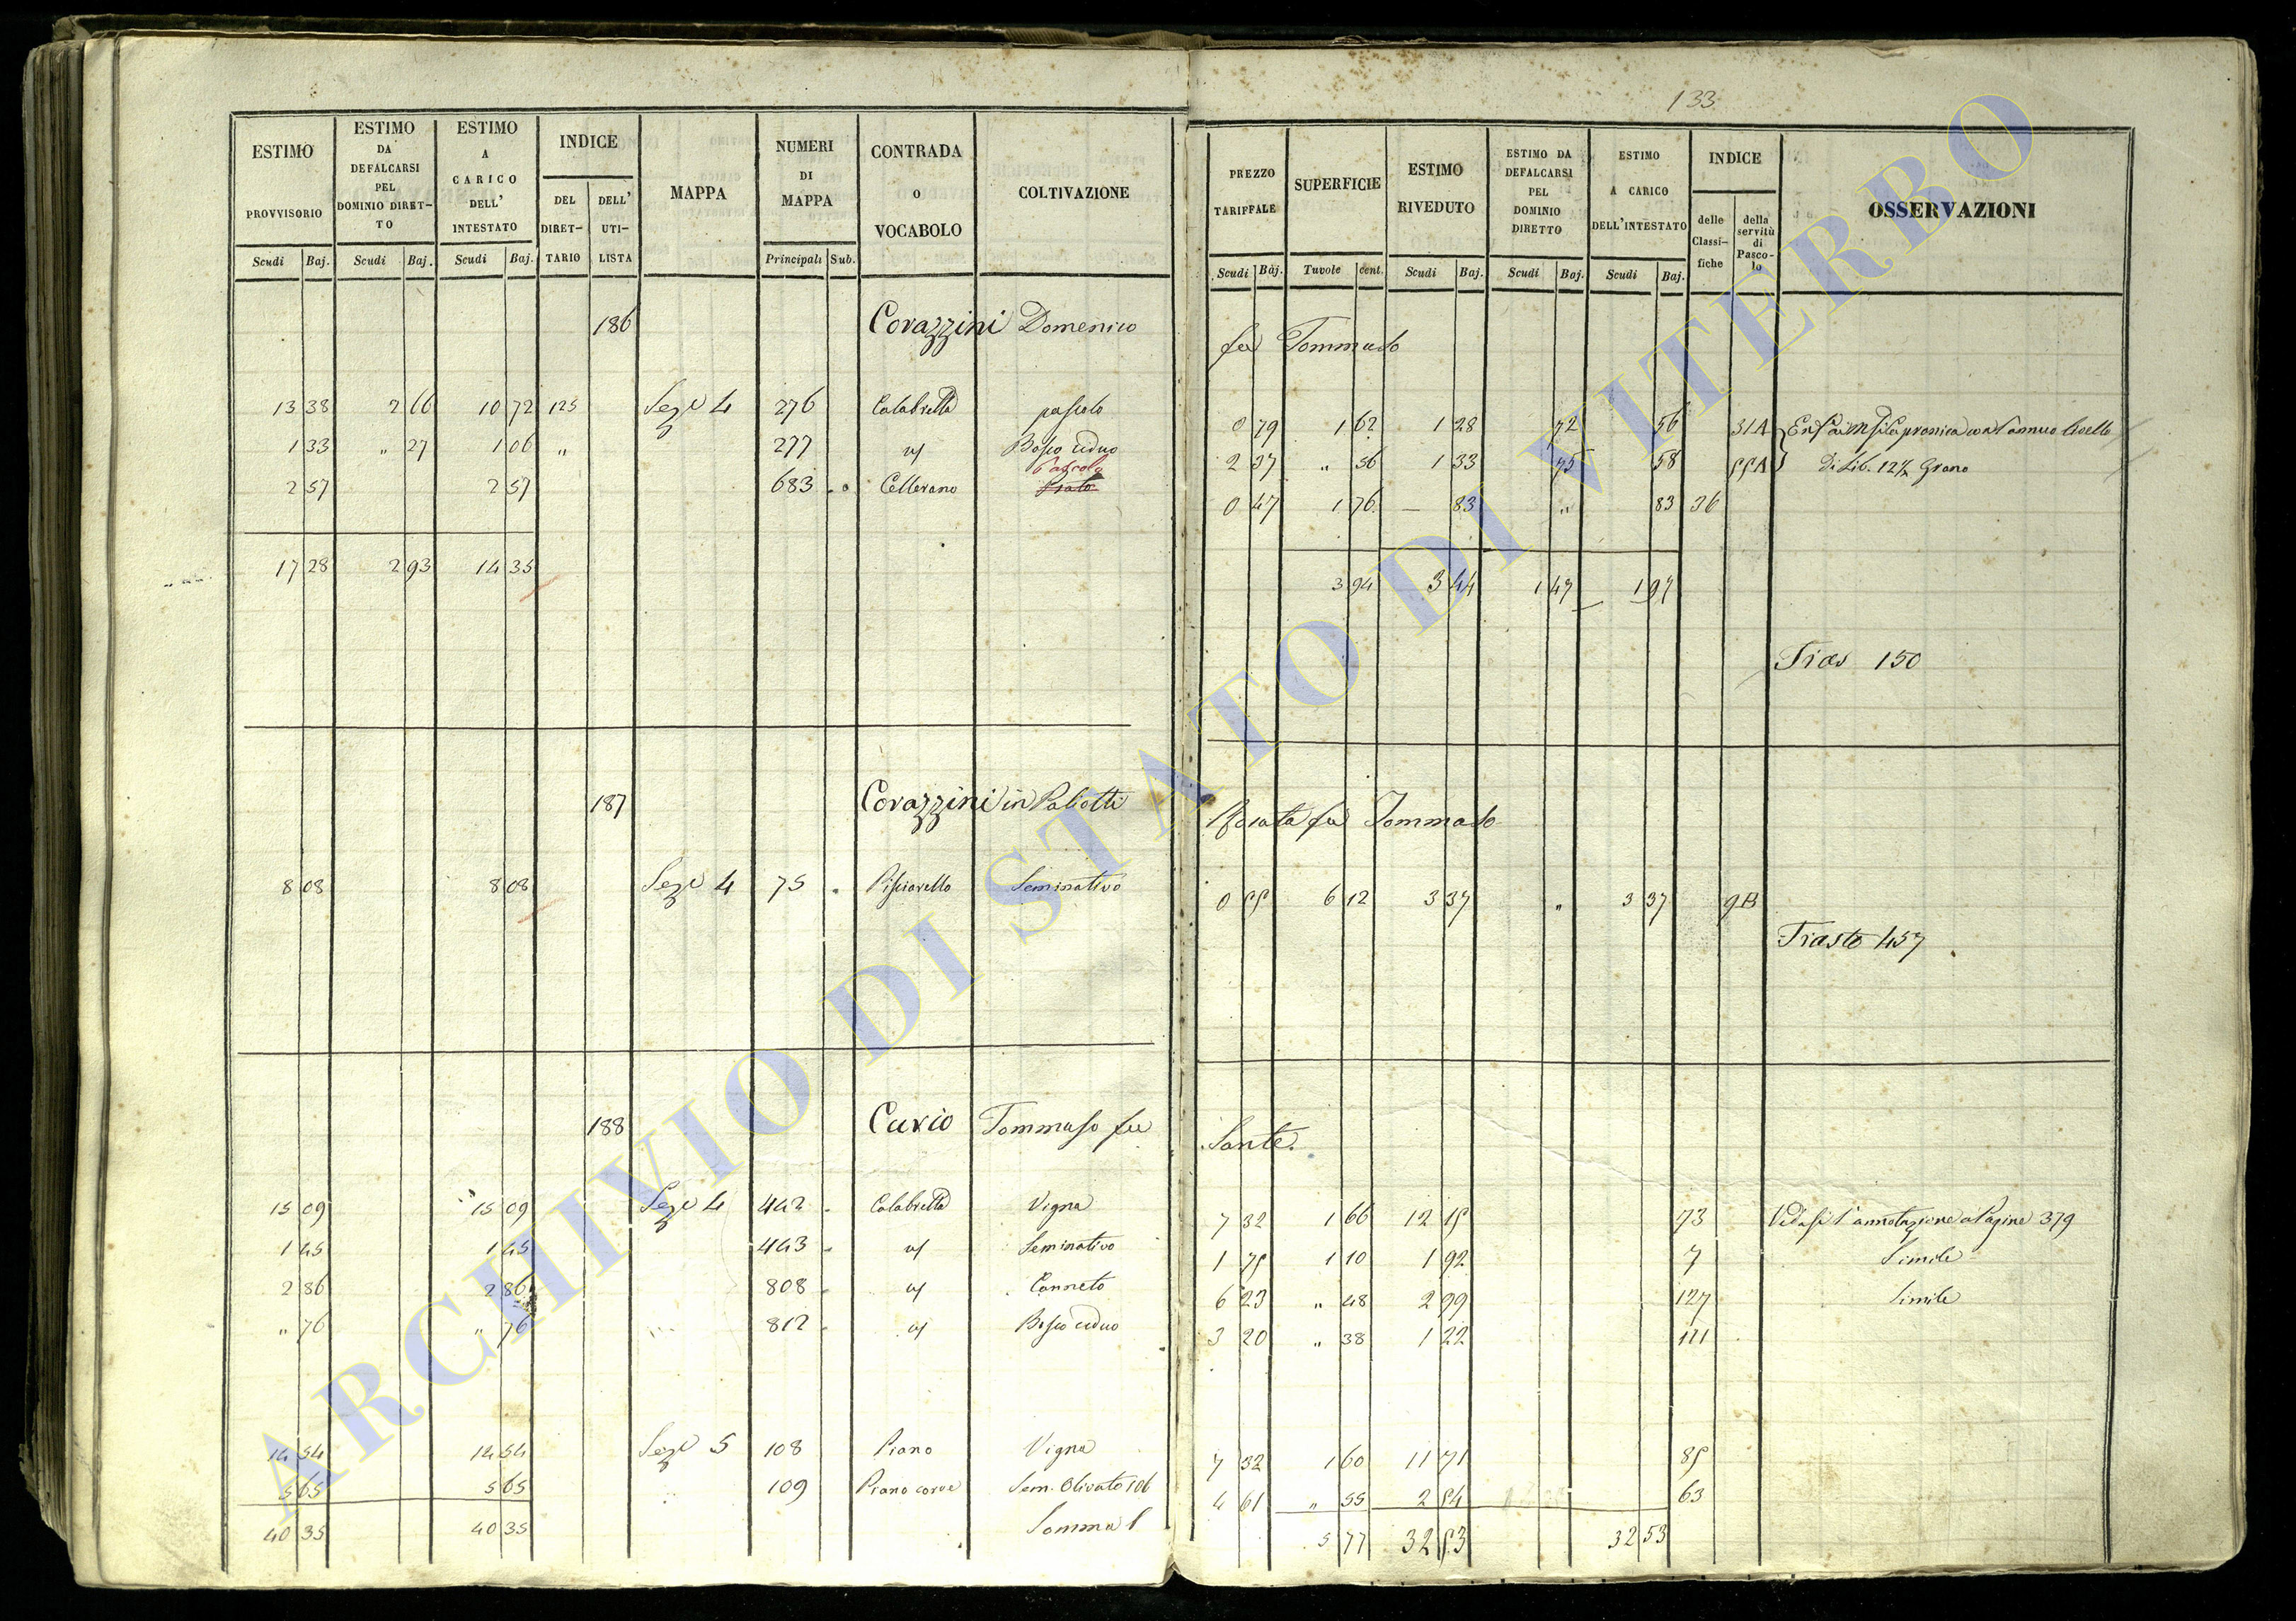 133
ESTIMO PROVVISORIO | ESTIMO DA DEFALCARSI PEL DOMINIO DIRETTO | ESTIMO A CARICO DELL' INTESTATO | INDICE DEL DIRETTARIO | DELL' UTILISTA | MAPPA | NUMERI DI MAPPA | CONTRADA o VOCABOLO | COLTIVAZIONE | PREZZO TARIFFALE | SUPERFICIE | ESTIMO RIVEDUTO | ESTIMO DA DEFALCARSI PEL DOMINIO DIRETTO | ESTIMO A CARICO DELL'INTESTATO | INDICE delle Classifiche | della servitù di Pascolo | OSSERVAZIONI
Scudi Baj. | Scudi Baj. | Scudi Baj. | Principali Sub. | Scudi Baj. | Tavole cent. | Scudi Baj. | Scudi Baj. | Scudi Baj.
186 Corazzini Domenico fu Tommaso
13 38 | 2 66 | 10 72 | 125 | Seze 4 | 276 | Calabretta | pascolo | 0 79 | 1 62 | 1 28 | 72 | 56 | 31A
1 33 | " 27 | 1 06 | " | 277 | Bosco ceduo | 2 37 | " 56 | 1 33 | 75 | 58 | 55A | Di Lib. 12½ Grano
2 57 | 2 57 | 683 | Cellerano | Pascolo Prato | 0 47 | 1 76 | 83 | " | 83 | 36
17 28 | 2 93 | 14 35 | 3 94 | 3 44 | 1 47 | 1 97
150
187 Corazzini in Paliotti fu Tommaso
8 08 | 8 08 | Seze 4 | 75 | Pisciarello | Seminativo | 0 55 | 6 12 | 3 37 | " | 3 37 | 9B
457
188 Curio Tommaso fu Sante.
15 09 | 15 09 | Seze 4 | 442 | Calabretta | Vigna | 7 32 | 1 66 | 12 15 | 73 | Vedasi l'annotazione a Pagine 379
1 45 | 1 45 | 443 | Seminativo | 1 75 | 1 10 | 1 92 | 7 | Simile
2 86 | 2 86 | 808 | Canneto | 6 23 | " 48 | 2 99 | 127 | Simile
" 76 | " 76 | 812 | Bosco ceduo | 3 20 | " 38 | 1 22 | 111
14 54 | 14 54 | Seze 5 | 108 | Piano | Vigna | 7 32 | 1 60 | 11 71 | 85
5 65 | 5 65 | 109 | Piano | Sem. Olivato 106 | 4 61 | " 55 | 2 54 | 63
40 35 | 40 35 | Somma | 5 77 | 32 53 | 32 53
ARCHIVIO DI STATO DI VITERBO